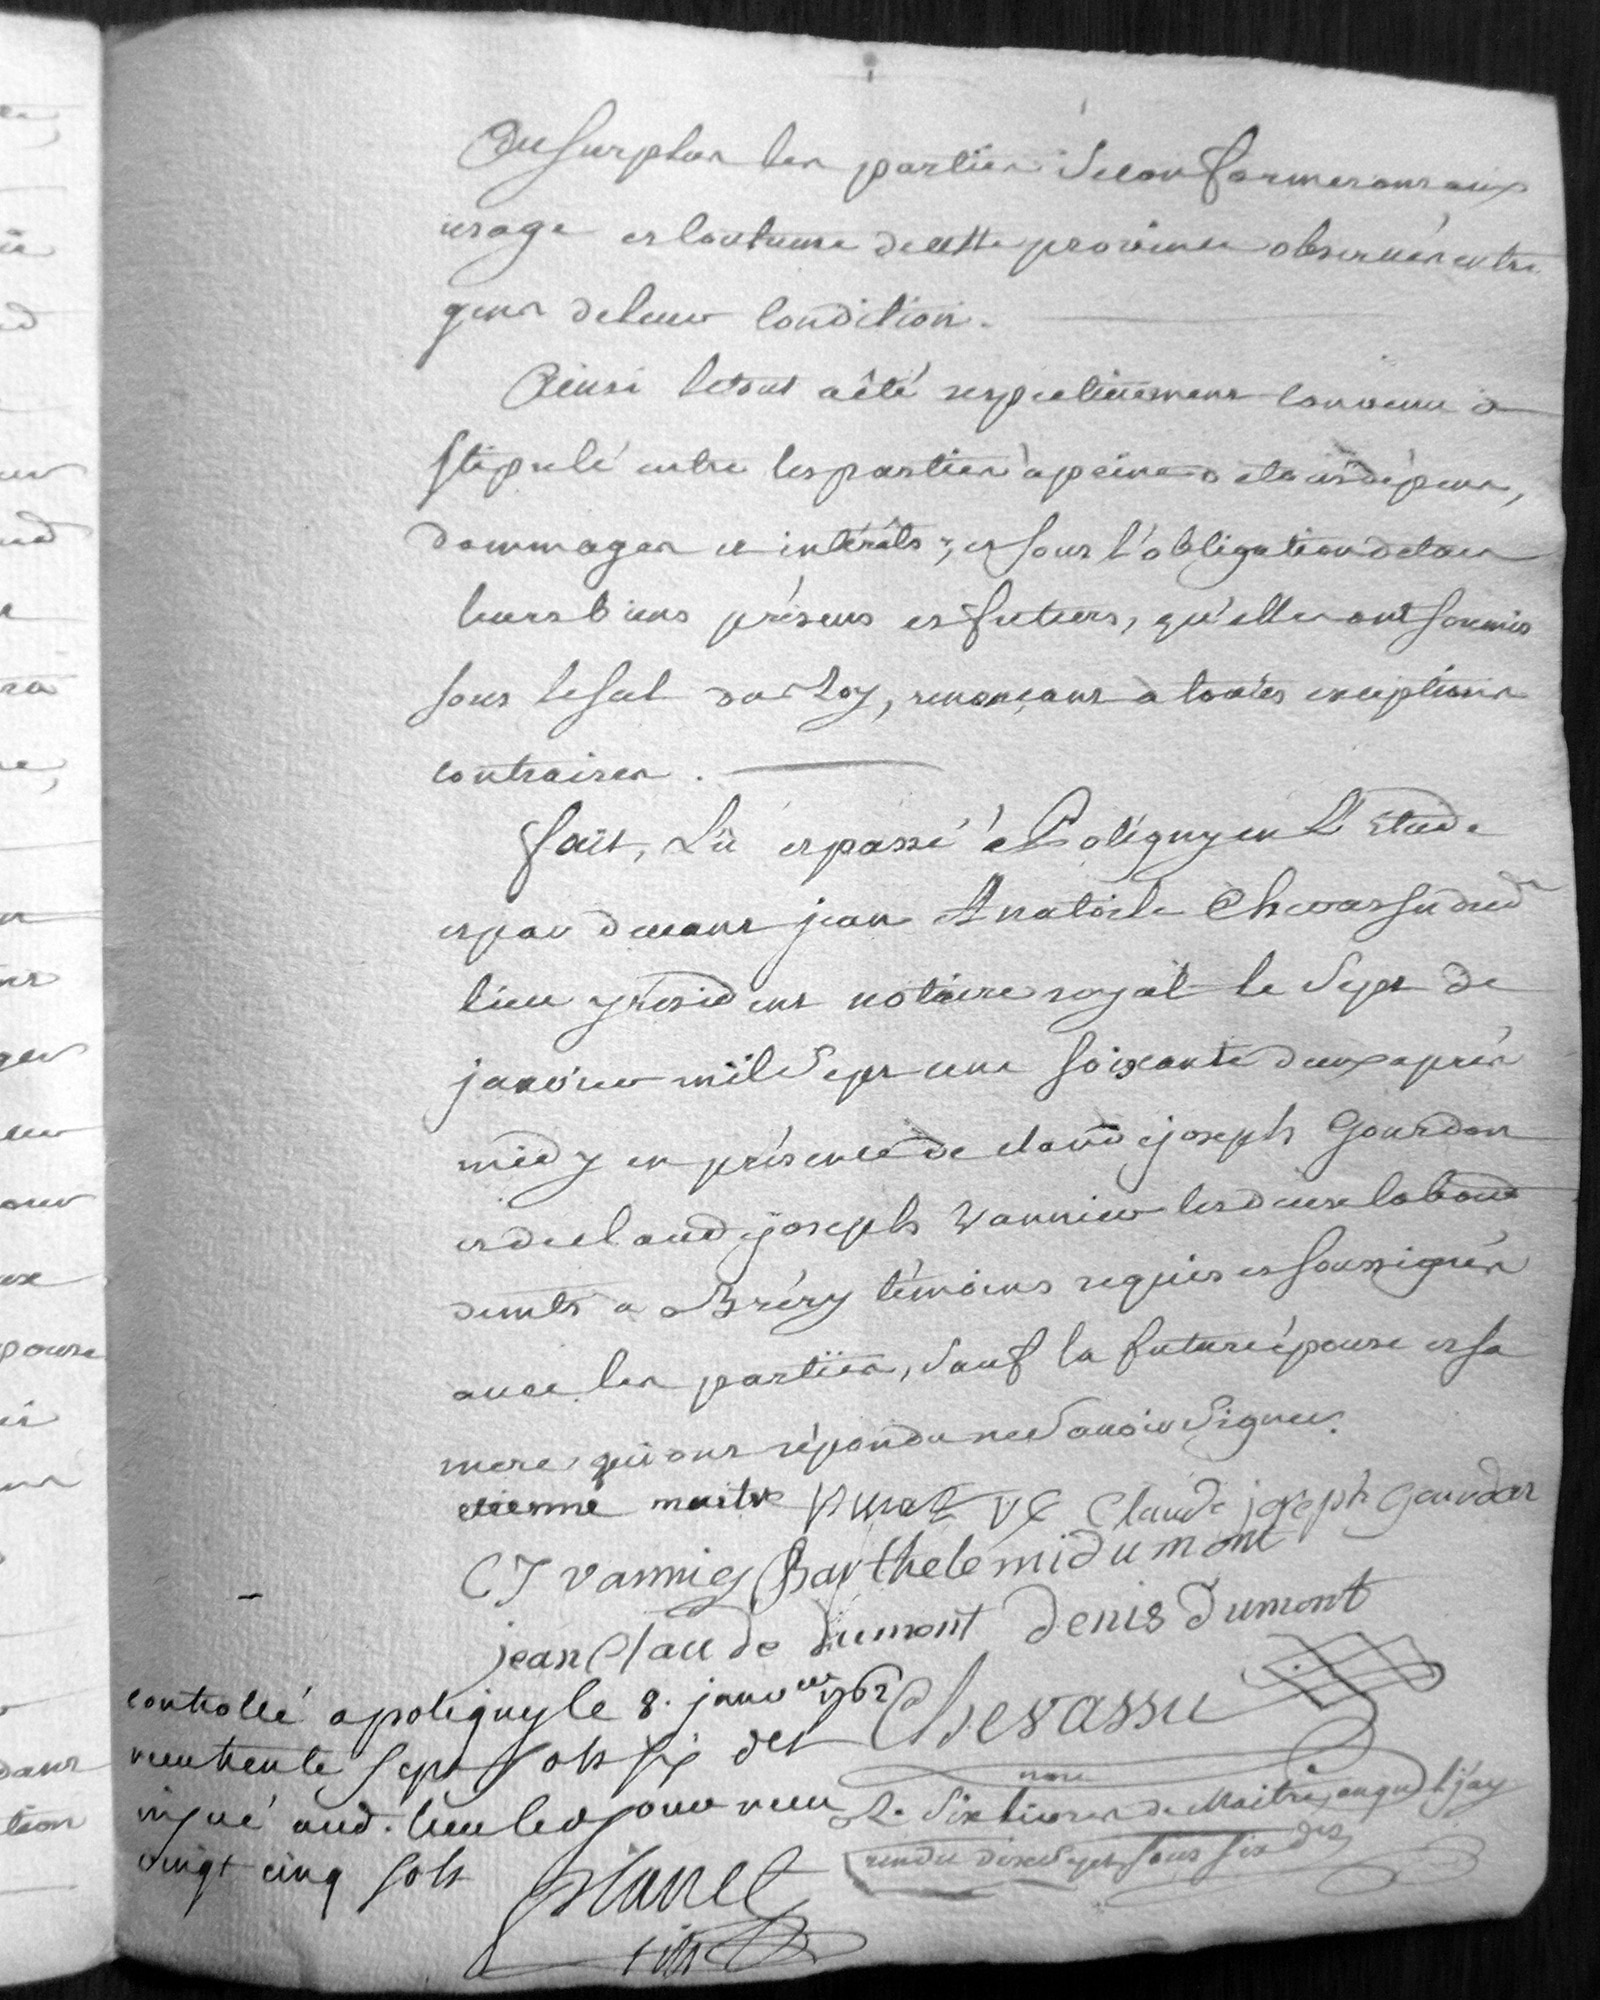 Du surplus les parties se conformeront aux
usage et coutume de cette province observées entre
gens de leur condition.
Ainsi le tout a êté respectivement convenu &
stipulé entre les parties à peine de tous dépens,
dommages et intérêts, et sous l'obligation de tous
leurs biens présens et futurs, qu'elles ont soumis
sous le scel du Roy, renonçant à toutes exceptions
contraires.
fait, Lû et passé à Poligny en L'Etude
et par devant jean Anatoile Chevassu dud
lieu y résident notaire royal le sept de
janvier mil sept cent soixante deux après
midy en présence de claude joseph Gourdon
et de claude joseph Vannier les deux labour
demts a Bréry témoins requis et soussignés
avec les parties, sauf la future épouse et sa
mere qui ont répondu ne savoir signer.
etienne maitre Claude joseph Gourdon
C J vannier Barthelemi dumont
jean Claude dumont denis dumont
controllé a poligny le 8. janver 1762 Chevassu
receu trente sept sols six ders
insinué aud. lieu led jour receu R. six livres de Maitre, auquel j'ay
vingt cinq sols rendu dix sept sous six ders